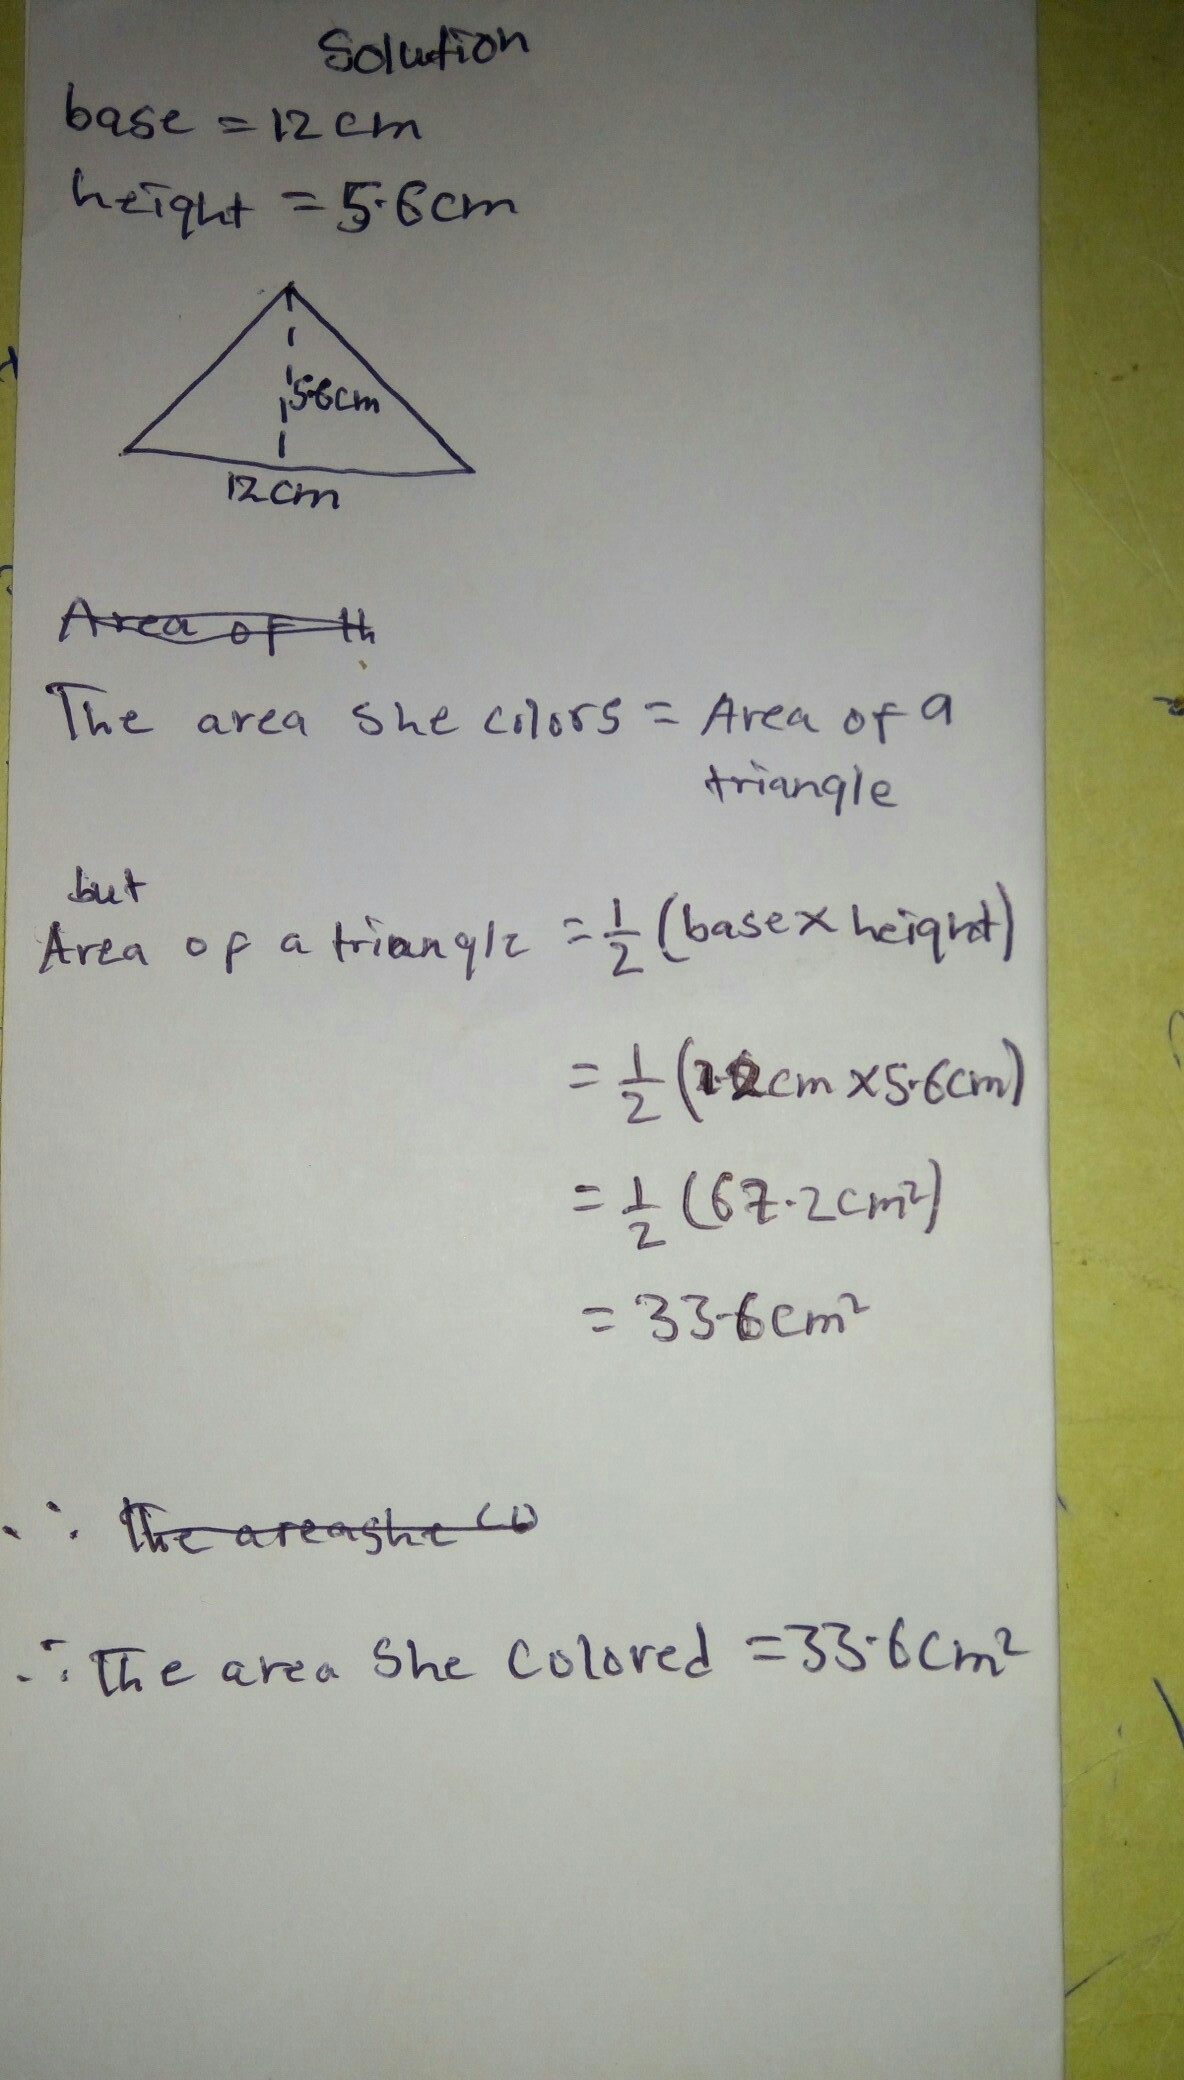 Solution
base = 12cm
height = 5.6cm
5.6cm
12cm
Area of th
The area she colors = Area of a
triangle
but
Area of a triangle = 1/2 (base x height)
= 1/2 (12cm x 5.6cm)
= 1/2 (67.2cm²)
= 33.6cm²
∴ The area she co
∴ The area She Colored = 33.6cm²